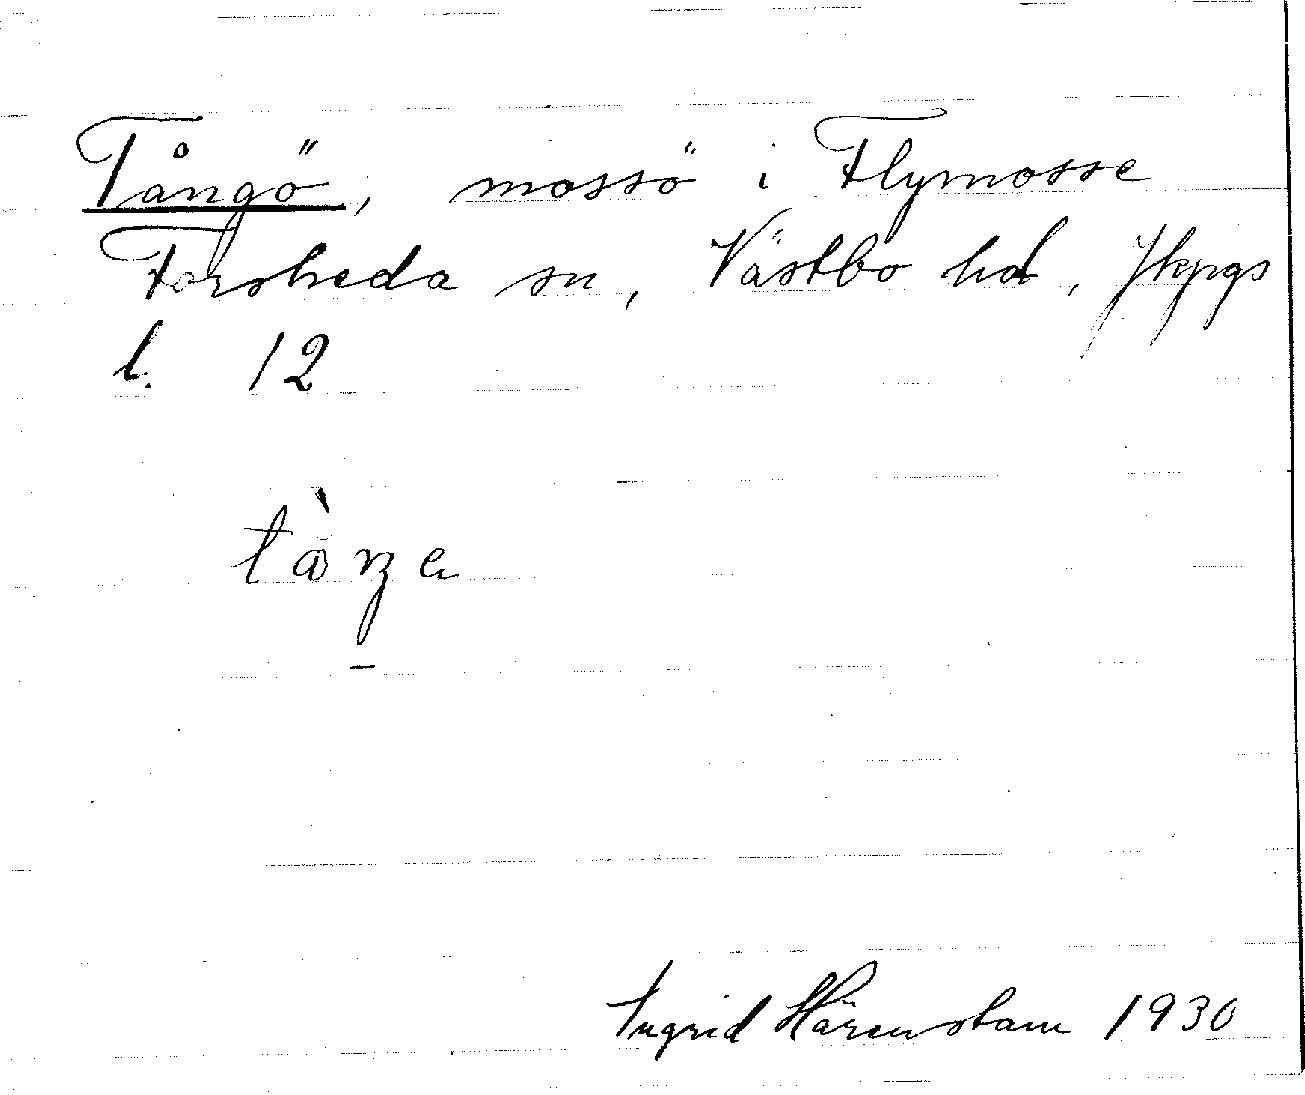 Tångö, mossö i Flymosse
Forsheda sn, Västbo hd, Jkpgs
l. 12
Ingrid Härenstam 1930